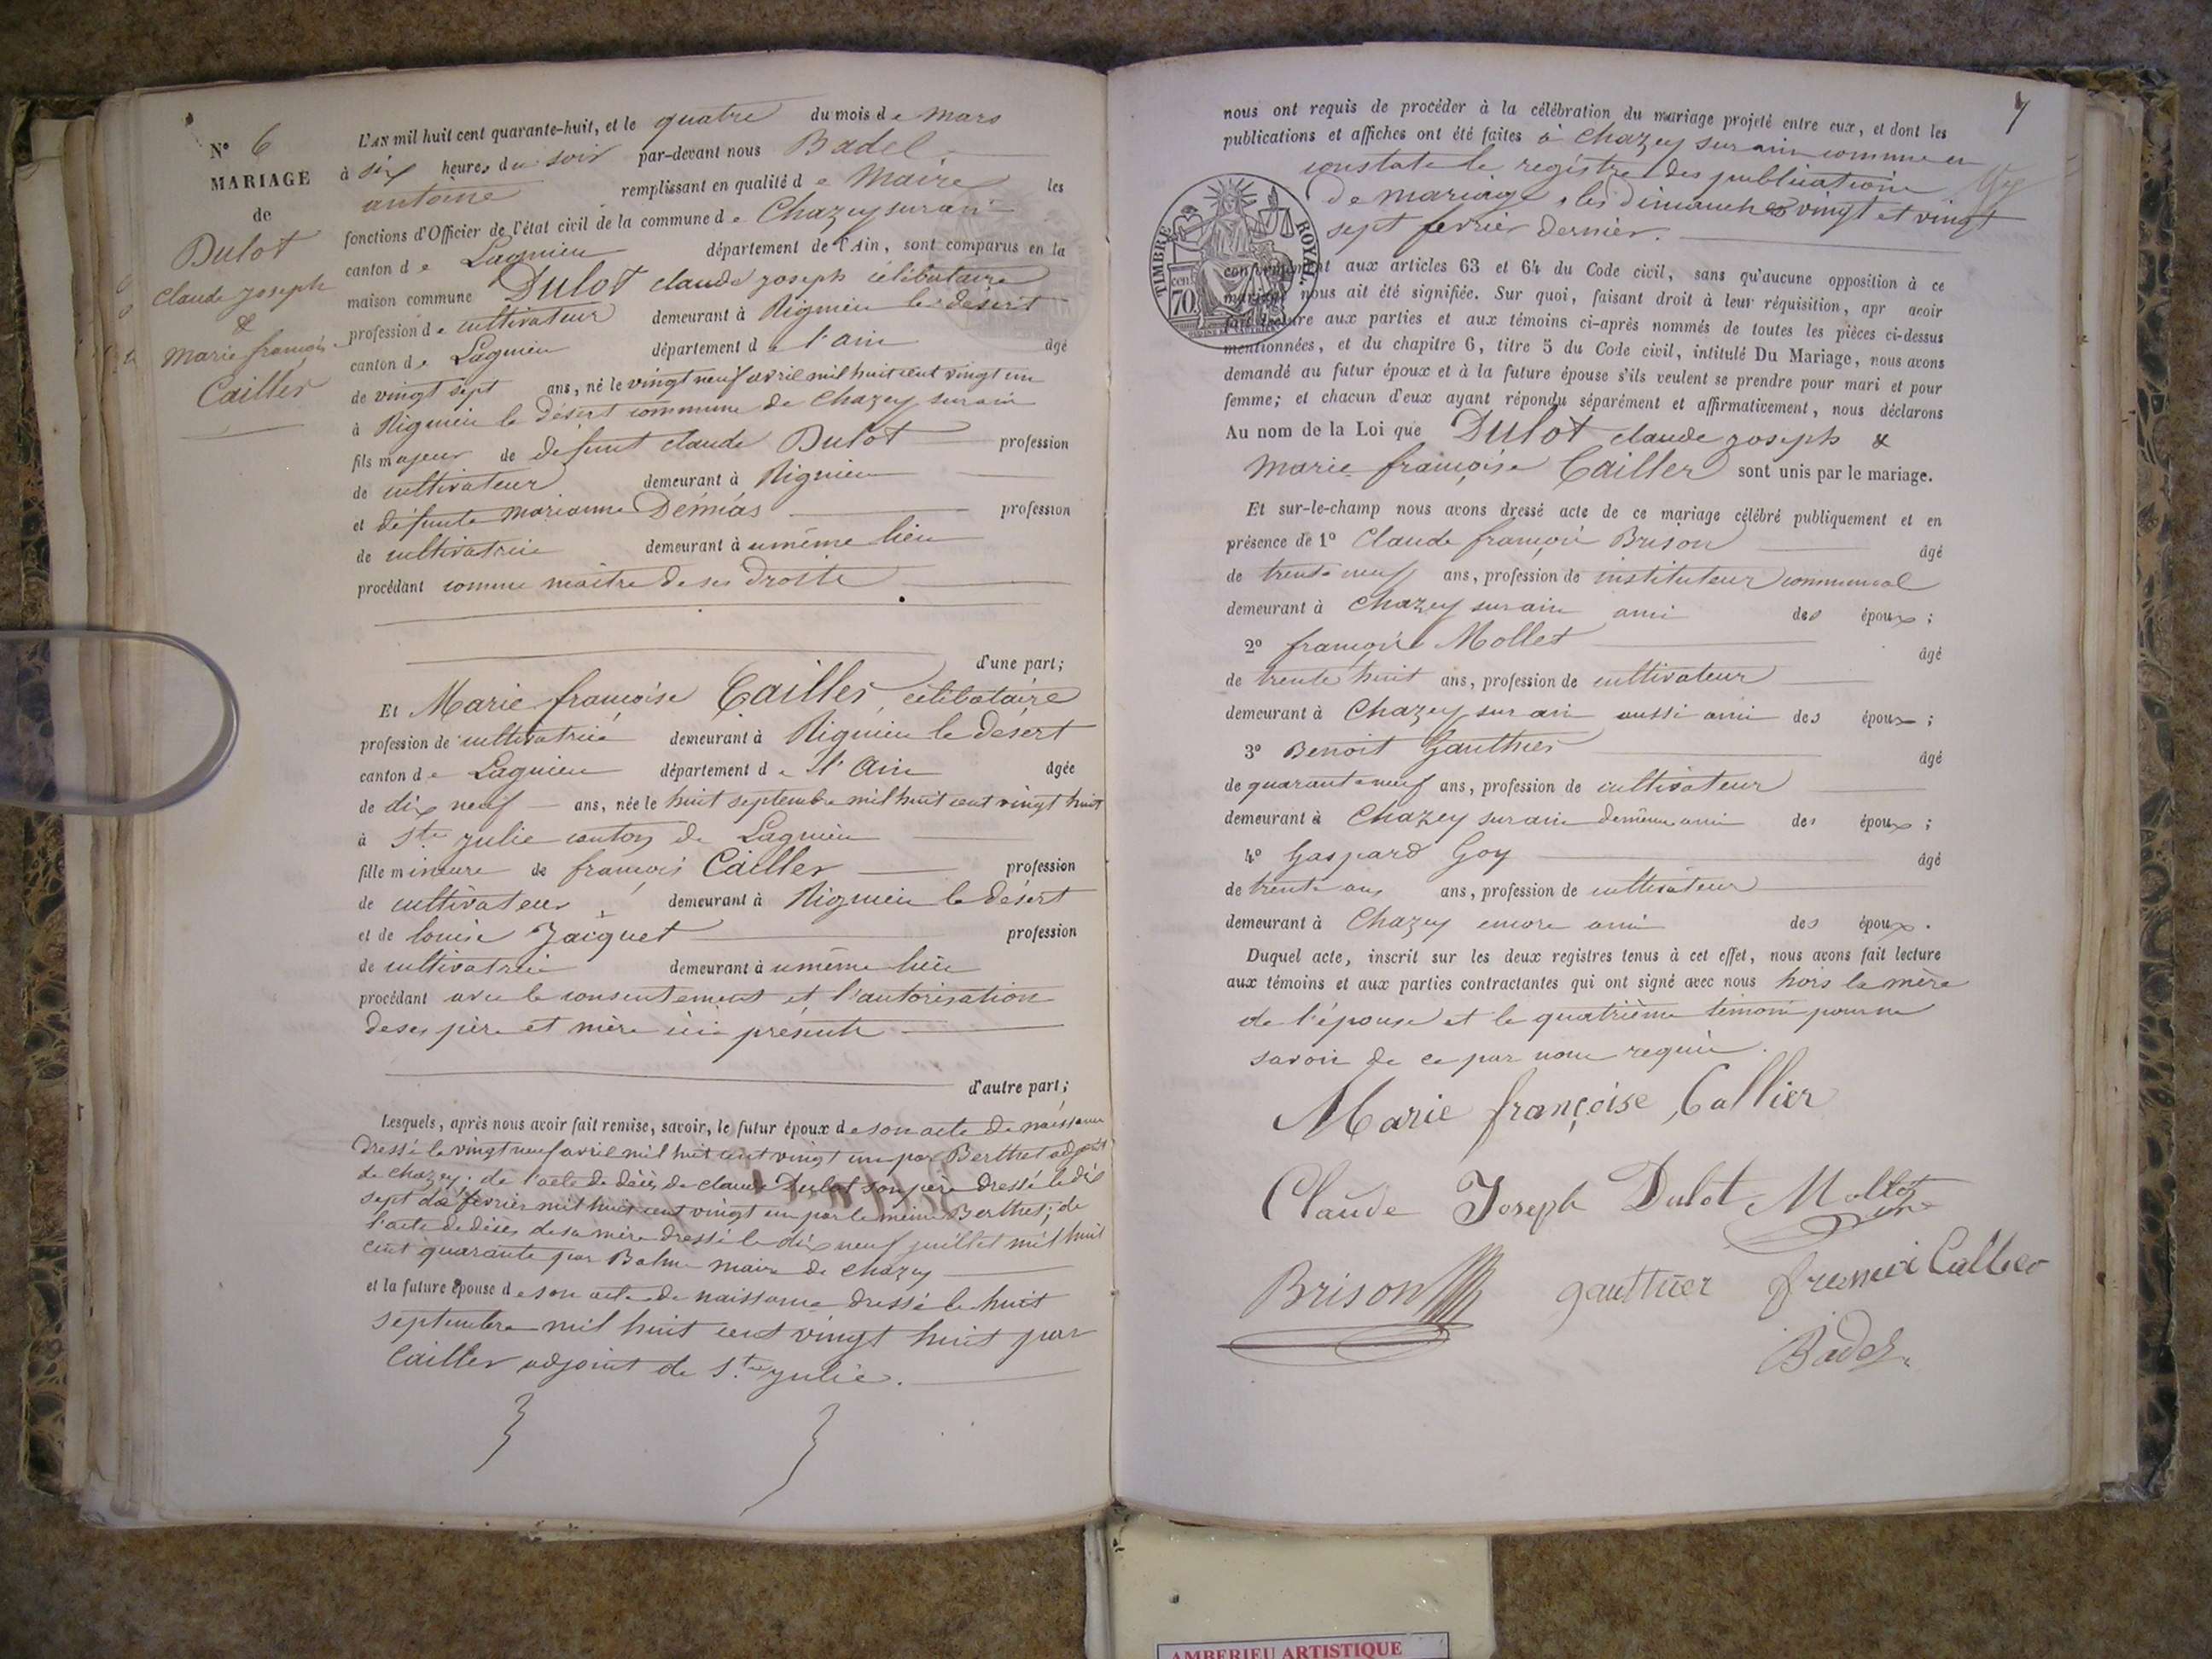 N° 6
MARIAGE
de
Dulot
claude joseph
&
marie françoise
Cailler
L'AN mil huit cent quarante-huit, et le quatre du mois de mars
à six heures du soir par-devant nous Badel
antoine remplissant en qualité de Maire les
fonctions d'Officier de l'état civil de la commune de Chazey sur ain
canton de Lagnieu département de l'Ain, sont comparus en la
maison commune Dulot claude joseph célibataire
profession de cultivateur demeurant à Rignieu le désert
canton de Lagnieu département de l'ain âgé
de vingt sept ans, né le vingt neuf avril mil huit cent vingt un
à Rignieu le désert commune de Chazey sur ain
fils majeur de défunt claude Dulot profession
de cultivateur demeurant à Rignieu
et défunte marianne Démias profession
de cultivatrice demeurant à u même lieu
procédant comme maître de ses droits
d'une part;
Et Marie françoise Cailler célibataire
profession de cultivatrice demeurant à Rignieu le désert
canton de Lagnieu département de l'Ain âgée
de dix neuf ans, née le huit septembre mil huit cent vingt huit
à Ste julie canton de Lagnieu
fille mineure de françois Cailler profession
de cultivateur demeurant à Rignieu le désert
et de louise Jaiquet profession
de cultivatrice demeurant à u même lieu
procédant avec le consentement et l'autorisation
de ses père et mère ici présents
d'autre part;
Lesquels, après nous avoir fait remise, savoir, le futur époux de son acte de naissance
dressé le vingt neuf avril mil huit cent vingt un par Berthet adjoint
de chazey; de l'acte de décès de claude Dulot son père dressé le dix
sept de février mil huit cent vingt un par le même Berthet; de
l'acte de décès de sa mère dressé le dix neuf juillet mil huit
cent quarante par Balme maire de chazey
et la future épouse de son acte de naissance dressé le huit
septembre mil huit cent vingt huit par
Cailler adjoint de Ste julie.
7
nous ont requis de procéder à la célébration du mariage projeté entre eux, et dont les
publications et affiches ont été faites à chazey sur ain comme en
constate le registre des publications
de mariage, les dimanches vingt et vingt
sept fevrier dernier.
TIMBRE ROYAL
cen. 70.
conformément aux articles 63 et 64 du Code civil, sans qu'aucune opposition à ce
mariage nous ait été signifiée. Sur quoi, faisant droit à leur réquisition, apr avoir
fait lecture aux parties et aux témoins ci-après nommés de toutes les pièces ci-dessus
mentionnées, et du chapitre 6, titre 5 du Code civil, intitulé Du Mariage, nous avons
demandé au futur époux et à la future épouse s'ils veulent se prendre pour mari et pour
femme; et chacun d'eux ayant répondu séparément et affirmativement, nous déclarons
Au nom de la Loi que Dulot claude joseph &
marie françoise Cailler sont unis par le mariage.
Et sur-le-champ nous avons dressé acte de ce mariage célébré publiquement et en
présence de 1° Claude françois Brison âgé
de trente neuf ans, profession de instituteur communal
demeurant à Chazey sur ain ami des époux;
2° françois Mollet âgé
de trente huit ans, profession de cultivateur
demeurant à Chazey sur ain aussi ami des époux;
3° Benoit Gauthier âgé
de quarante neuf ans, profession de cultivateur
demeurant à Chazey sur ain de même ami des époux;
4° Gaspard Goy âgé
de trente ans ans, profession de cultivateur
demeurant à Chazey encore ami des époux.
Duquel acte, inscrit sur les deux registres tenus à cet effet, nous avons fait lecture
aux témoins et aux parties contractantes qui ont signé avec nous hors la mère
de l'épouse et le quatrième témoin pour ne
savoir de ce par nous requis.
Marie françoise Callier
Claude Joseph Dulot Mollet
Brison gauthier Callier
Badel
AMBERIEU ARTISTIQUE